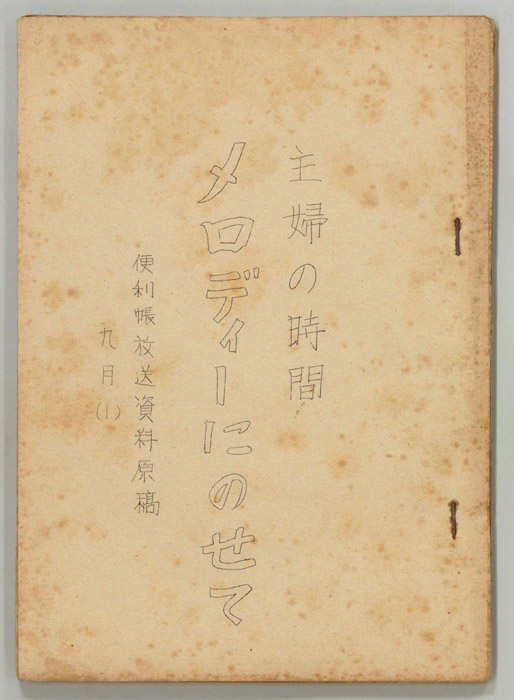 主婦の時間
メロディーにのせて
便利帳放送資料原稿
九月(1)